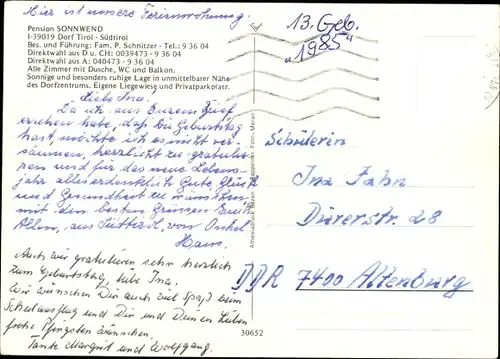 Hier ist unsere Ferienwohnung.
Pension SONNWEND
I-39019 Dorf Tirol - Südtirol
Bes. und Führung: Fam. P. Schnitzer - Tel.: 9 36 04
Direktwahl aus D u. CH: 0039473 - 9 36 04
Direktwahl aus A: 040473 - 9 36 04
Alle Zimmer mit Dusche, WC und Balkon.
Sonnige und besonders ruhige Lage in unmittelbarer Nähe
des Dorfzentrums. Eigene Liegewiese und Privatparkplatz.
Liebe Ina.
Da ich aus Eurem Brief
ersehen habe, daß Du Geburtstag
hast, möchte ich es nicht ver-
säumen, herzlichst zu gratulie-
ren und für das neue Lebens-
jahr alles erdenklich Gute, Glück
und Gesundheit zu wünschen
mit den besten Grüssen Euch
Allen, aus Südtirol, von Onkel
Hans.
Auch zur gratulieren sehr herzlich
zum Geburtstag, liebe Ina.
Wir wünschen Dir auch viel Spaß beim
Schulausflug und Dir und Deinen Lieben
frohe Pfingsten wünschen
Tante Margrit und Wolfgang.
13. Geb.
"1985"
Schülerin
Ina Fahn
Dürerstr. 28
DDR 7400 Altenburg
30652